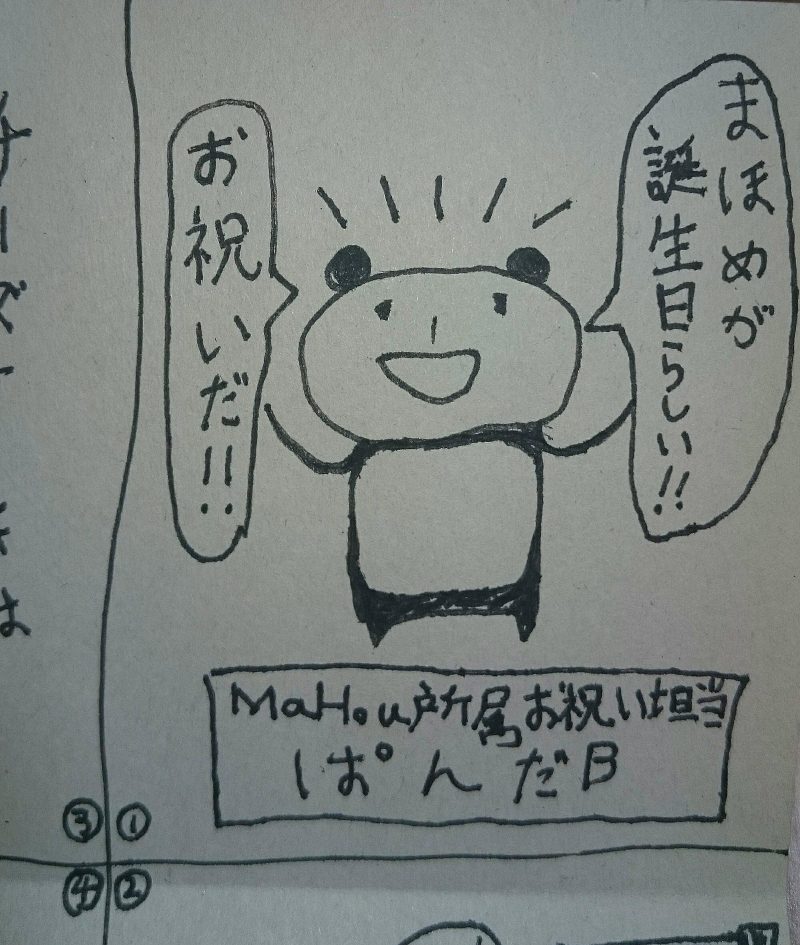 まほめが
誕生日らしい!!
お祝いだ!!
MaHou所属お祝い担当
ぱんだB
①
②
③
④